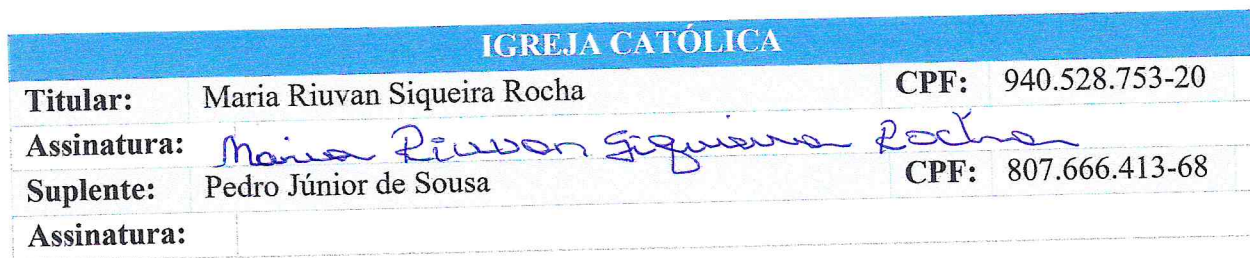 IGREJA CATÓLICA
Titular: Maria Riuvan Siqueira Rocha CPF: 940.528.753-20
Assinatura: Maria Riuvan Siqueira Rocha
Suplente: Pedro Júnior de Sousa CPF: 807.666.413-68
Assinatura: